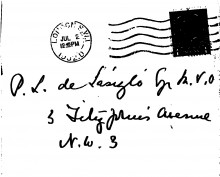 LONDON N.W.1
JUL 2
P. L. de László Esq M.V.O
3 Fitzjohn's Avenue
N.W. 3